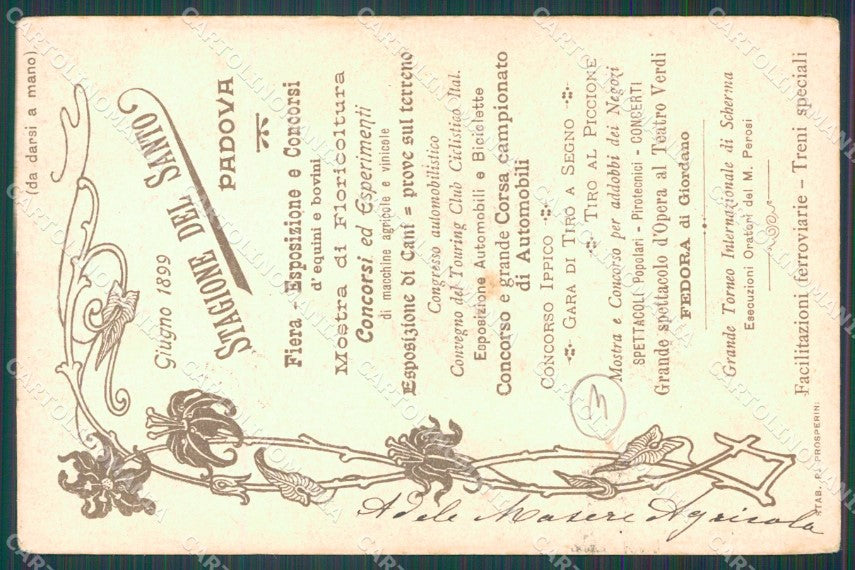 (da darsi a mano)
Giugno 1899
STAGIONE DEL SANTO
PADOVA
Fiera - Esposizione e Concorsi
d'equini e bovini
Mostra di Floricoltura
Concorsi ed Esperimenti
di macchine agricole e vinicole
Esposizione di Cani = prove sul terreno
Congresso automobilistico
Convegno del Touring Club Ciclistico Ital.
Esposizione Automobili e Biciclette
Concorso e grande Corsa campionato
di Automobili
CONCORSO IPPICO
GARA DI TIRO A SEGNO
TIRO AL PICCIONE
Mostra e Concorso per addobbi dei Negozi
SPETTACOLI Popolari - Pirotecnici - CONCERTI
Grande spettacolo d'Opera al Teatro Verdi
FEDORA di Giordano
Grande Torneo Internazionale di Scherma
Esecuzioni Oratori del M. Perosi
Facilitazioni ferroviarie - Treni speciali
STAB. PROSPERINI
3
Adele Maseri Agricola
CARTOLINOMANIA